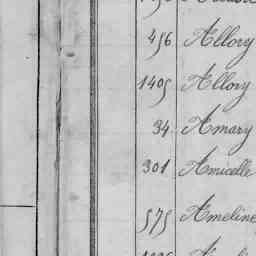 456 Allory
1405 Allory
34 Amary
301 Amicelle
575 Ameline